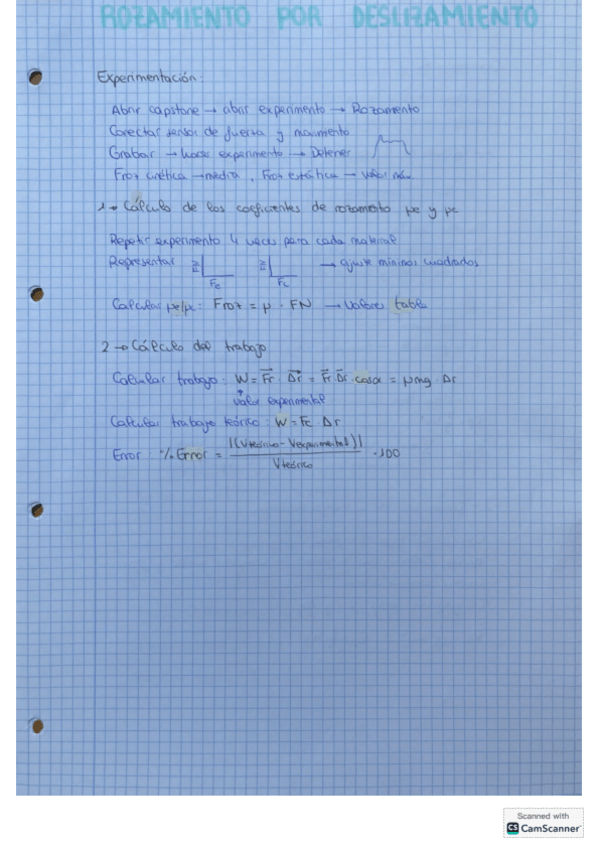 ROZAMIENTO POR DESLIZAMIENTO
Experimentación:
Abrir capstone → abrir experimento → Rozamiento
Conectar sensor de fuerza y movimiento
Grabar → hacer experimento → Detener
Froz cinética → media, Froz estática → valor máx.
1 → Cálculo de los coeficientes de rozamiento μe y μc
Repetir experimento 4 veces para cada material
Representar Fe Fc → ajuste mínimos cuadrados
Calcular μe/μc: Froz = μ · FN → valores tabla
2 → Cálculo del trabajo
Calcular trabajo: W = Fr · Δr = Fr Δr · cosα = μmg · Δr
valor experimental
Calcular trabajo teórico: W = Fc · Δr
Error: % Error = |(Vteórico - Vexperimental)| / Vteórico · 100
Scanned with
CS CamScanner